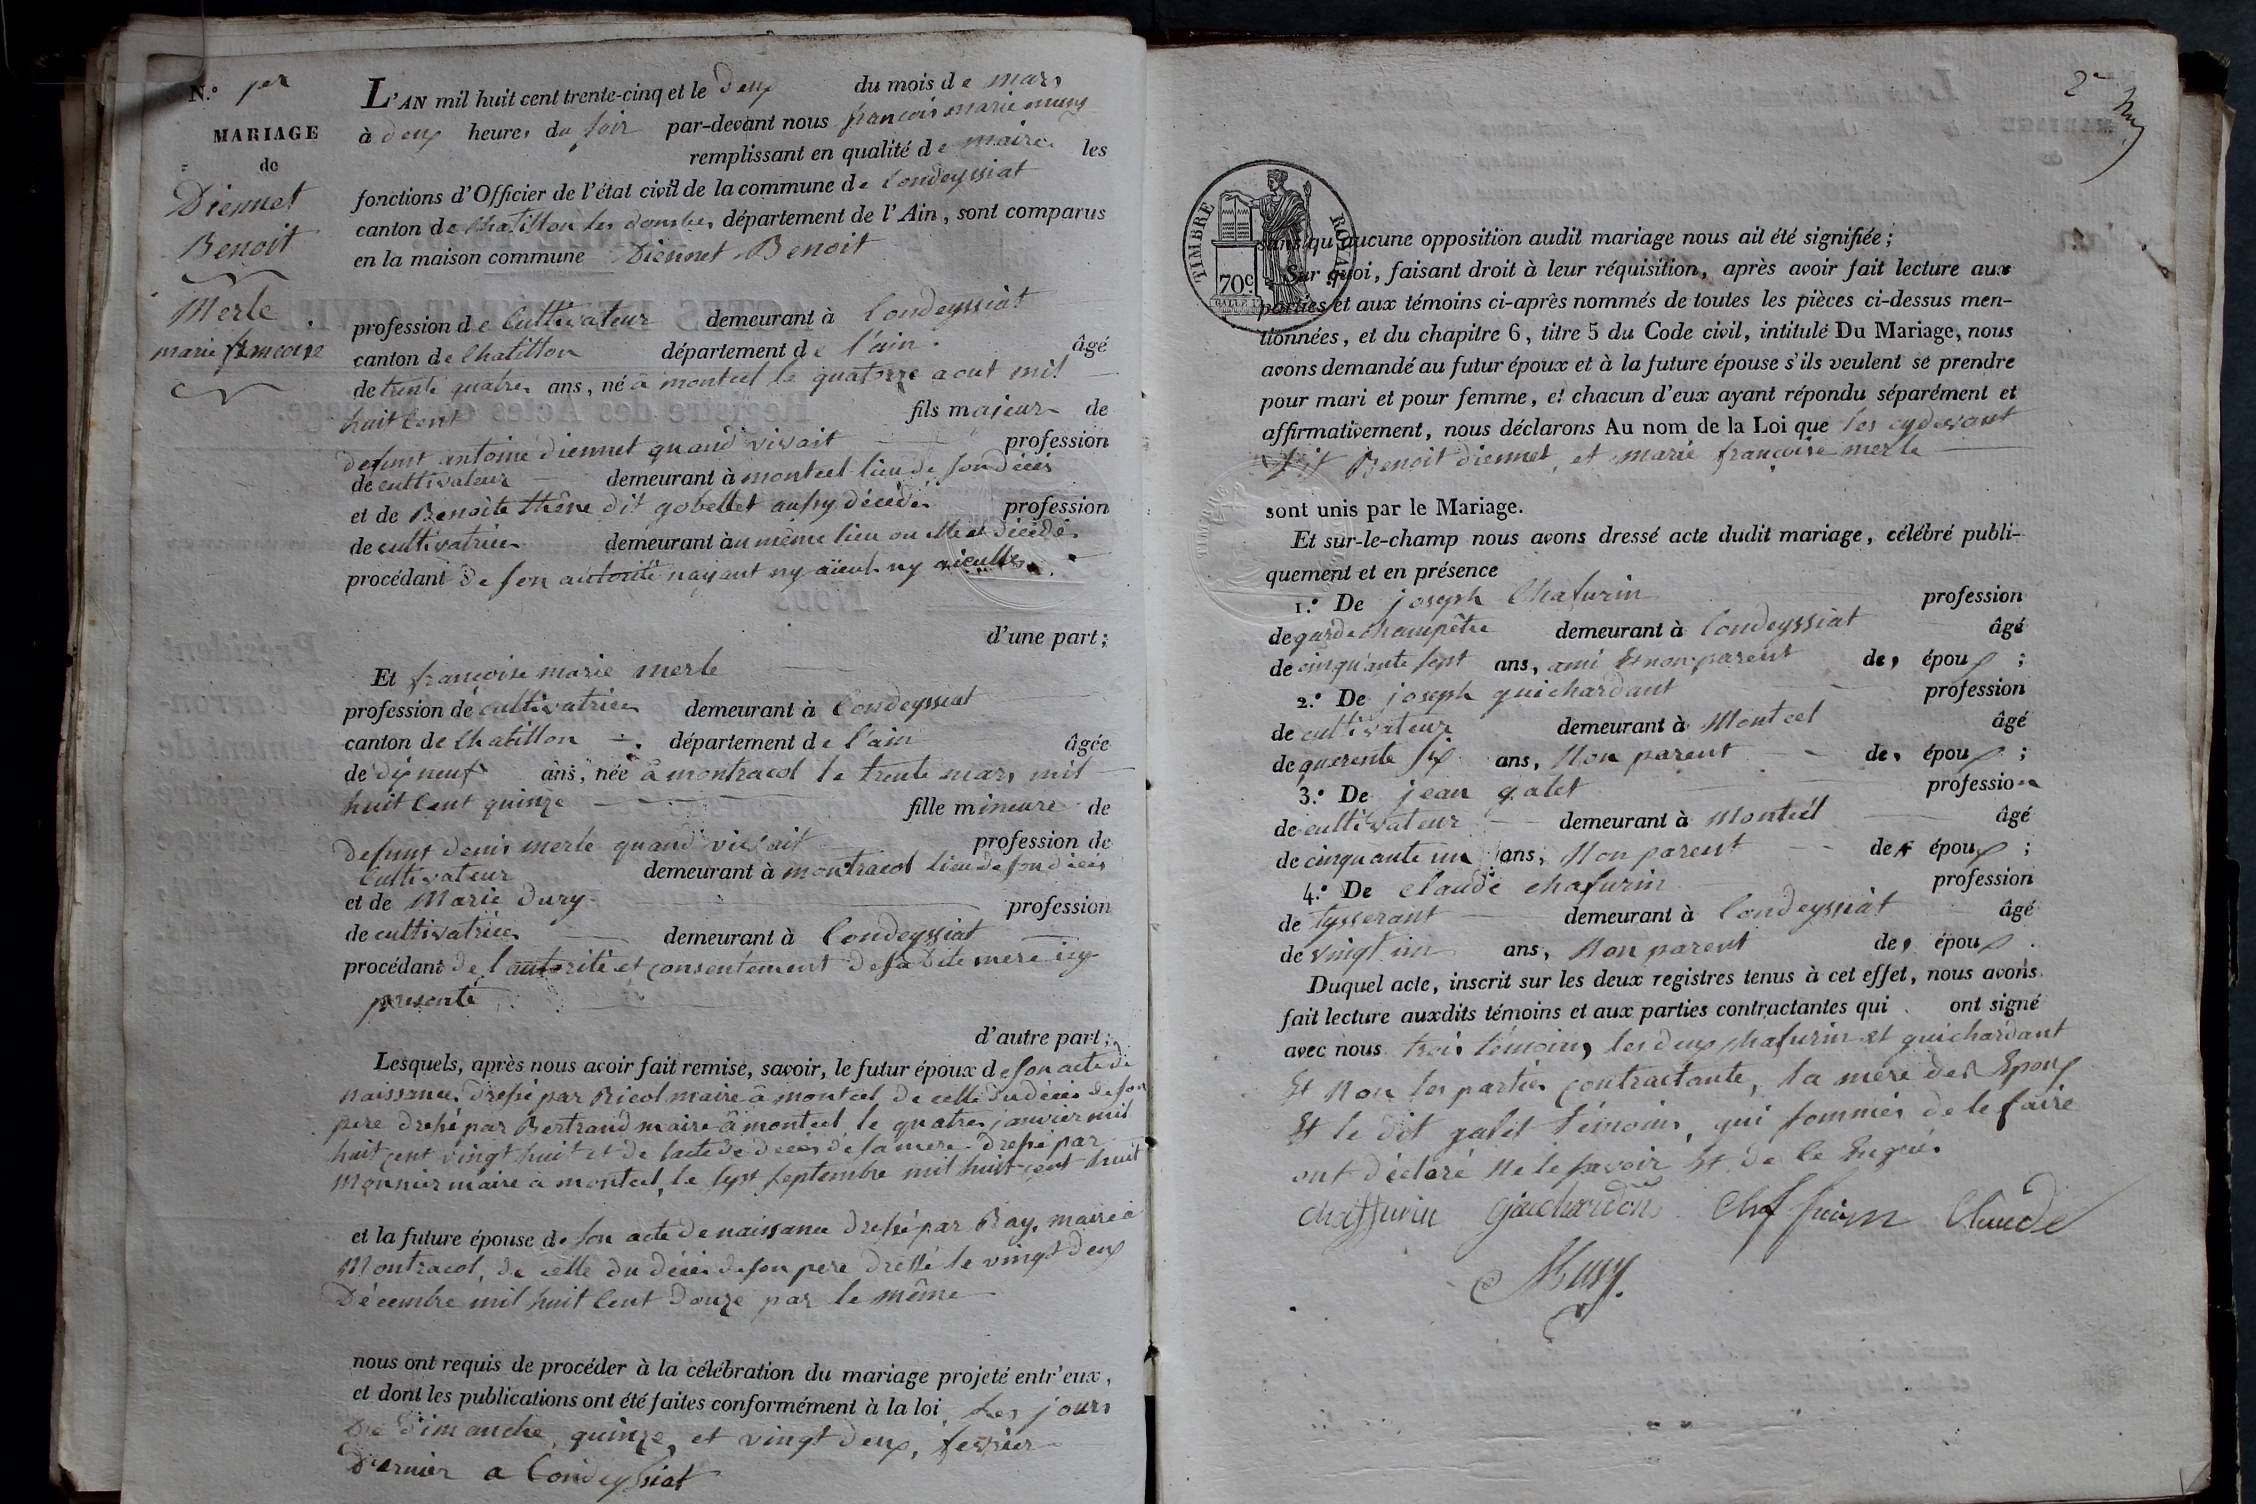 N.° 1er
MARIAGE
de
Diennet
Benoit
Merle
marie francoise
L'AN mil huit cent trente-cinq et le deux du mois de mars
à deux heures du soir par-devant nous francois marie musy
remplissant en qualité de maire les
fonctions d'Officier de l'état civil de la commune de Condeyssiat
canton de Chatillon les dombes département de l'Ain, sont comparus
en la maison commune Diennet Benoit
profession de Cultivateur demeurant à Condeyssiat
canton de Chatillon département de l'ain. âgé
de trente quatres ans, né à monteel le quatorze aout mil
huit Cent fils majeur de
defunt antoine diennet quand vivait profession
de cultivateur demeurant à monteel lieu de son décès
et de Benoite thêne dit gobellet aussy décédé profession
de cultivatrice demeurant au même lieu ou elle est décédé
procédant de son autorité nayant ny aïeul ny aieulles
d'une part;
Et françoise marie merle
profession de cultivatrice demeurant à Condeyssiat
canton de Chatillon département de l'ain âgée
de dix neuf ans, née à montracol le trente mars mil
huit Cent quinze fille mineure de
defunt denis merle quand vivait profession de
Cultivateur demeurant à montracol lieu de son décès
et de Marie Dury profession
de cultivatrice demeurant à Condeyssiat
procédant de l'autorité et consentement de sa dite mere icy
presente
d'autre part;
Lesquels, après nous avoir fait remise, savoir, le futur époux de son acte de
naissance dressé par Ricol maire à monteel de celle du décès de son
pere dressé par Bertrand maire à monteel le quatres janvier mil
huit cent vingt huit et de lacte de décès de sa mere dressé par
Monnier maire a monteel, le sept septembre mil huit cent huit
et la future épouse de son acte de naissance dressé par Ray, maire à
Montracol, de celle du décès de son pere dressé le vingt deux
Décembre mil huit Cent douze par le même
nous ont requis de procéder à la célébration du mariage projeté entr'eux,
et dont les publications ont été faites conformément à la loi, les jours
De dimanche quinze, et vingt deux, fevrier
dernier a Condeyssiat
2e
TIMBRE ROYAL
70c
sans qu'aucune opposition audit mariage nous ait été signifiée;
Sur quoi, faisant droit à leur réquisition, après avoir fait lecture aux
parties et aux témoins ci-après nommés de toutes les pièces ci-dessus men-
tionnées, et du chapitre 6, titre 5 du Code civil, intitulé Du Mariage, nous
avons demandé au futur époux et à la future épouse s'ils veulent se prendre
pour mari et pour femme, et chacun d'eux ayant répondu séparément et
affirmativement, nous déclarons Au nom de la Loi que les cydevant
dit Benoit diennet, et marie françoise merle
sont unis par le Mariage.
Et sur-le-champ nous avons dressé acte dudit mariage, célébré publi-
quement et en présence
1.° De joseph Chafurin profession
de garde champêtre demeurant à Condeyssiat âgé
de cinquante sept ans, ami et non parent des époux;
2.° De joseph guichardant profession
de cultivateur demeurant à Monteel âgé
de quarente six ans, Non parent des époux;
3.° De jean galet profession
de cultivateur demeurant à Monteél âgé
de cinquante un ans, Non parent des époux;
4.° De claude chafurin profession
de tysserant demeurant à Condeyssiat âgé
de vingt un ans, Non parent des époux.
Duquel acte, inscrit sur les deux registres tenus à cet effet, nous avons
fait lecture auxdits témoins et aux parties contractantes qui ont signé
avec nous trois témoins, les deux chafurin et guichardant
Et Non les parties contractante, la mère des Epoux
Et le dit galet témoins, qui sommés de le faire
ont déclaré Ne le savoir Et de ce Enquis
chaffurin guichardon Chaffurin Claude
Musy